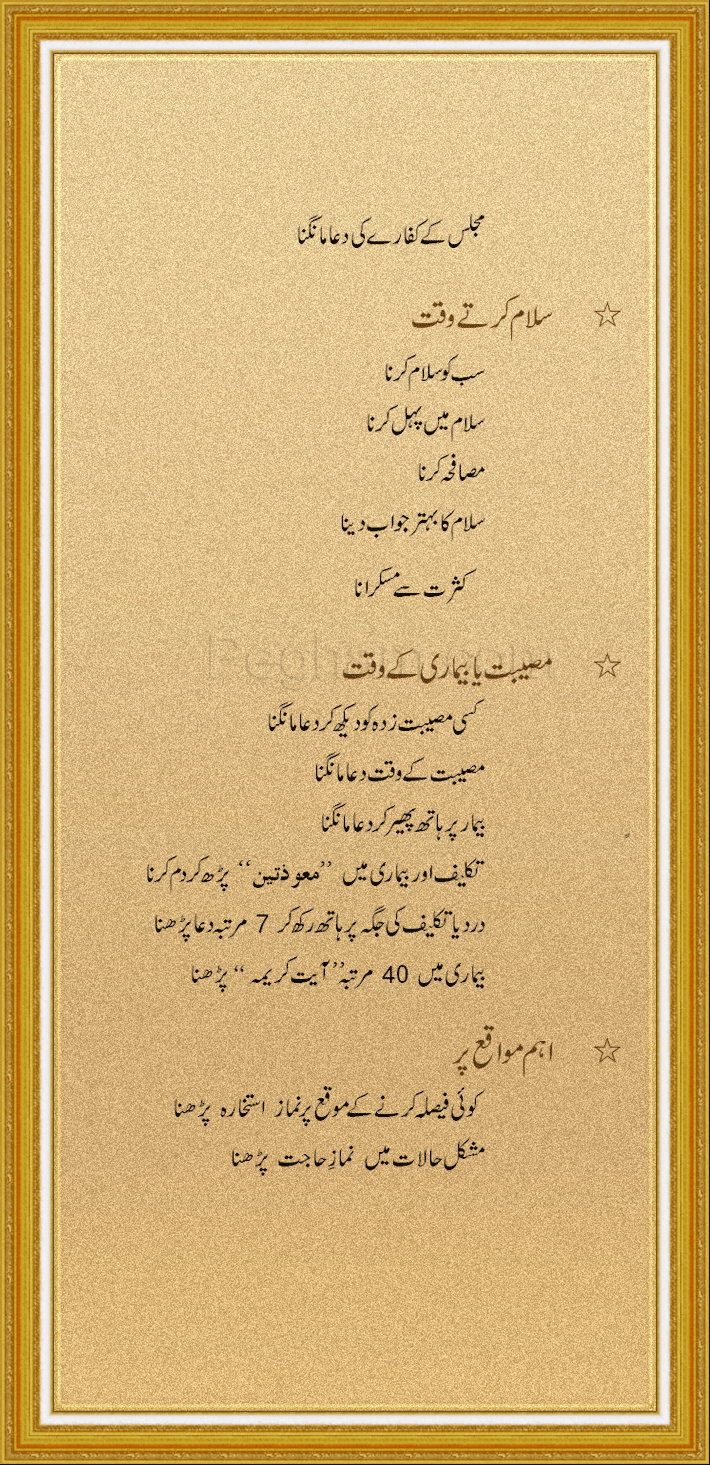 مجلس کے کفارے کی دعا مانگنا
☆ سلام کرتے وقت
سب کو سلام کرنا
سلام میں پہل کرنا
مصافحہ کرنا
سلام کا بہتر جواب دینا
کثرت سے مسکرانا
☆ مصیبت یا بیماری کے وقت
کسی مصیبت زدہ کو دیکھ کر دعا مانگنا
مصیبت کے وقت دعا مانگنا
بیمار پر ہاتھ پھیر کر دعا مانگنا
تکلیف اور بیماری میں ’’معوذتین‘‘ پڑھ کر دم کرنا
درد یا تکلیف کی جگہ پر ہاتھ رکھ کر 7 مرتبہ دعا پڑھنا
بیماری میں 40 مرتبہ’’آیت کریمہ‘‘ پڑھنا
☆ اہم مواقع پر
کوئی فیصلہ کرنے کے موقع پر نماز استخارہ پڑھنا
مشکل حالات میں نمازِ حاجت پڑھنا